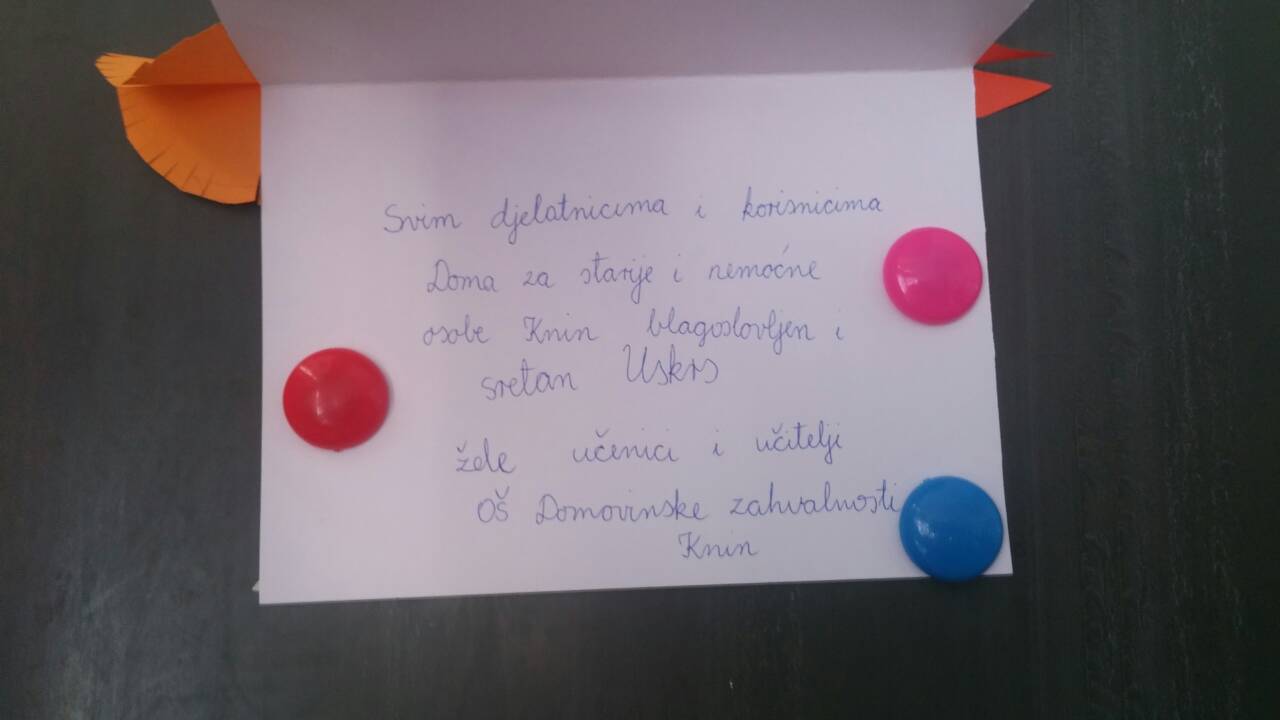 Svim djelatnicima i korisnicima
Doma za starije i nemoćne
osobe Knin blagoslovljen i
sretan Uskrs
žele učenici i učitelji
OŠ Domovinske zahvalnosti
Knin